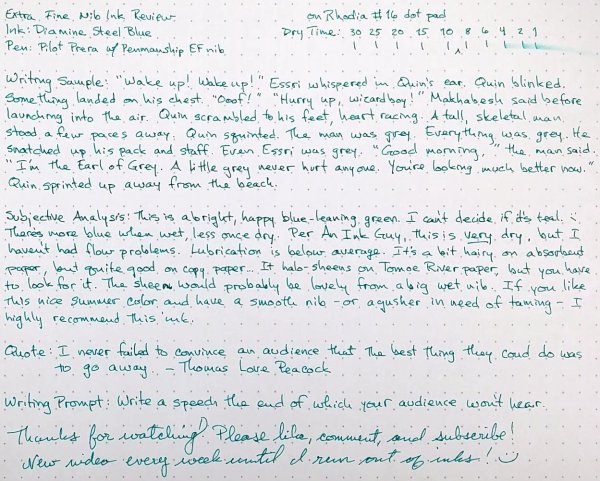 Extra Fine Nib Ink Review on Rhodia #16 dot pad
Ink: Diamine Steel Blue Dry Time: 30 25 20 15 10 8 6 4 2 1
Pen: Pilot Prera w/ Penmanship EF nib
Writing Sample: "Wake up! Wake up!" Essri whispered in Quin's ear. Quin blinked.
Something landed on his chest. "Ooof!" "Hurry up, wizard boy!" Makhabesh said before
launching into the air. Quin scrambled to his feet, heart racing. A tall, skeletal man
stood a few paces away. Quin squinted. The man was grey. Everything was grey. He
snatched up his pack and staff. Even Essri was grey. "Good morning," the man said.
"I'm the Earl of Grey. A little grey never hurt anyone. You're looking much better now."
Quin sprinted up away from the beach.
Subjective Analysis: This is a bright, happy blue-leaning green. I can't decide if it's teal. :.
There's more blue when wet, less once dry. Per An Ink Guy, this is very dry, but I
haven't had flow problems. Lubrication is below average. It's a bit hairy on absorbent
paper, but quite good on copy paper... It halo-sheens on Tomoe River paper, but you have
to look for it. The sheen would probably be lovely from a big wet nib. If you like
this nice summer color and have a smooth nib - or a gusher in need of taming - I
highly recommend this ink.
Quote: I never failed to convince an audience that the best thing they coud do was
to go away. - Thomas Love Peacock
Writing Prompt: Write a speech the end of which your audience won't hear.
Thanks for watching! Please like, comment, and subscribe!
New video every week until I run out of inks! :)